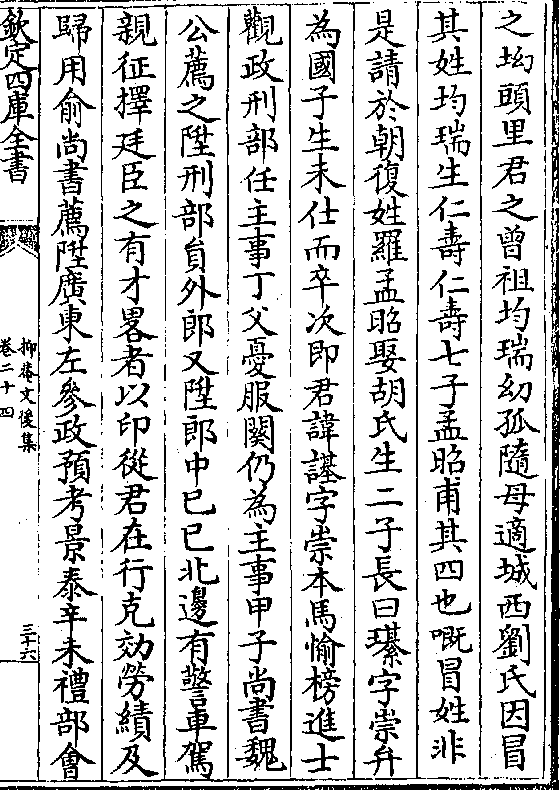 之坳頭里君之曾祖均瑞幼孤隨母適城西劉氏因冒
其姓均瑞生仁壽仁壽七子孟昭甫其四也嘅冒姓非
是請於朝復姓羅孟昭娶胡氏生二子長曰瓂字崇弁
為國子生未仕而卒次即君諱諶字崇本馬愉榜進士
觀政刑部任主事丁父憂服闋仍為主事甲子尚書魏
公薦之陞刑部員外郎又陞郎中已已北邊有警車駕
親征擇廷臣之有才畧者以印從君在行克効勞績及
歸用俞尚書薦陞廣東左參政預考景泰辛未禮部會
欽定四庫全書
抑菴文後集
卷二十四
三十六